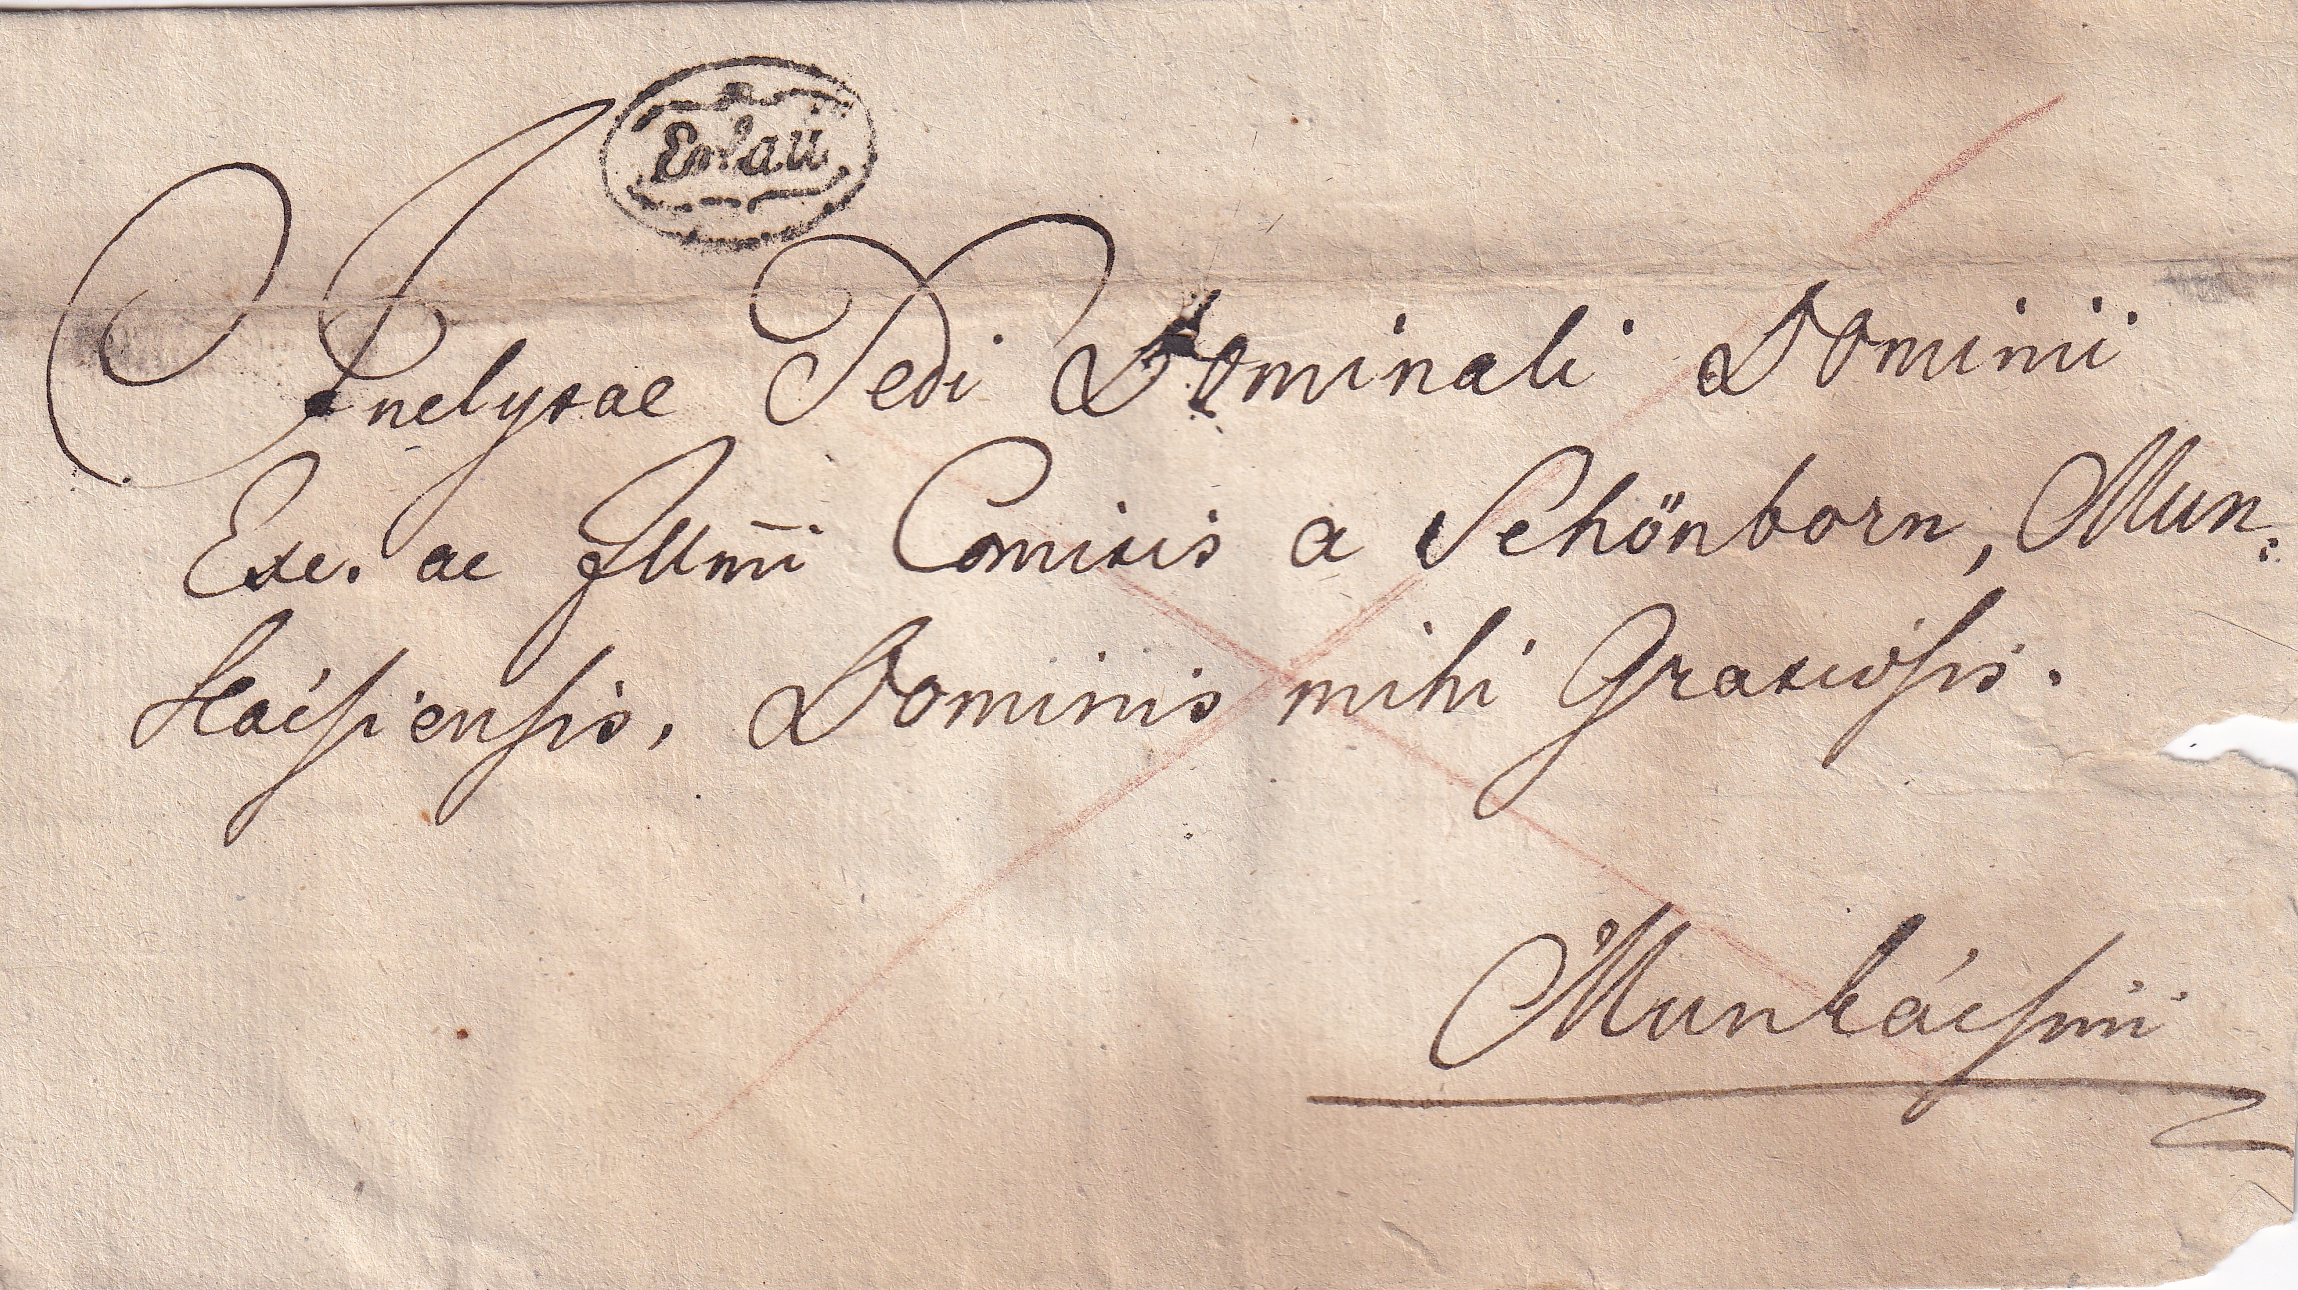 Erlau
Inclytae Sedi Dominali Dominii
Exc. ac Illmi Comitis a Schönborn, Mun:
kácsiensis, Dominis mihi Gratiosis.
Munkácsini